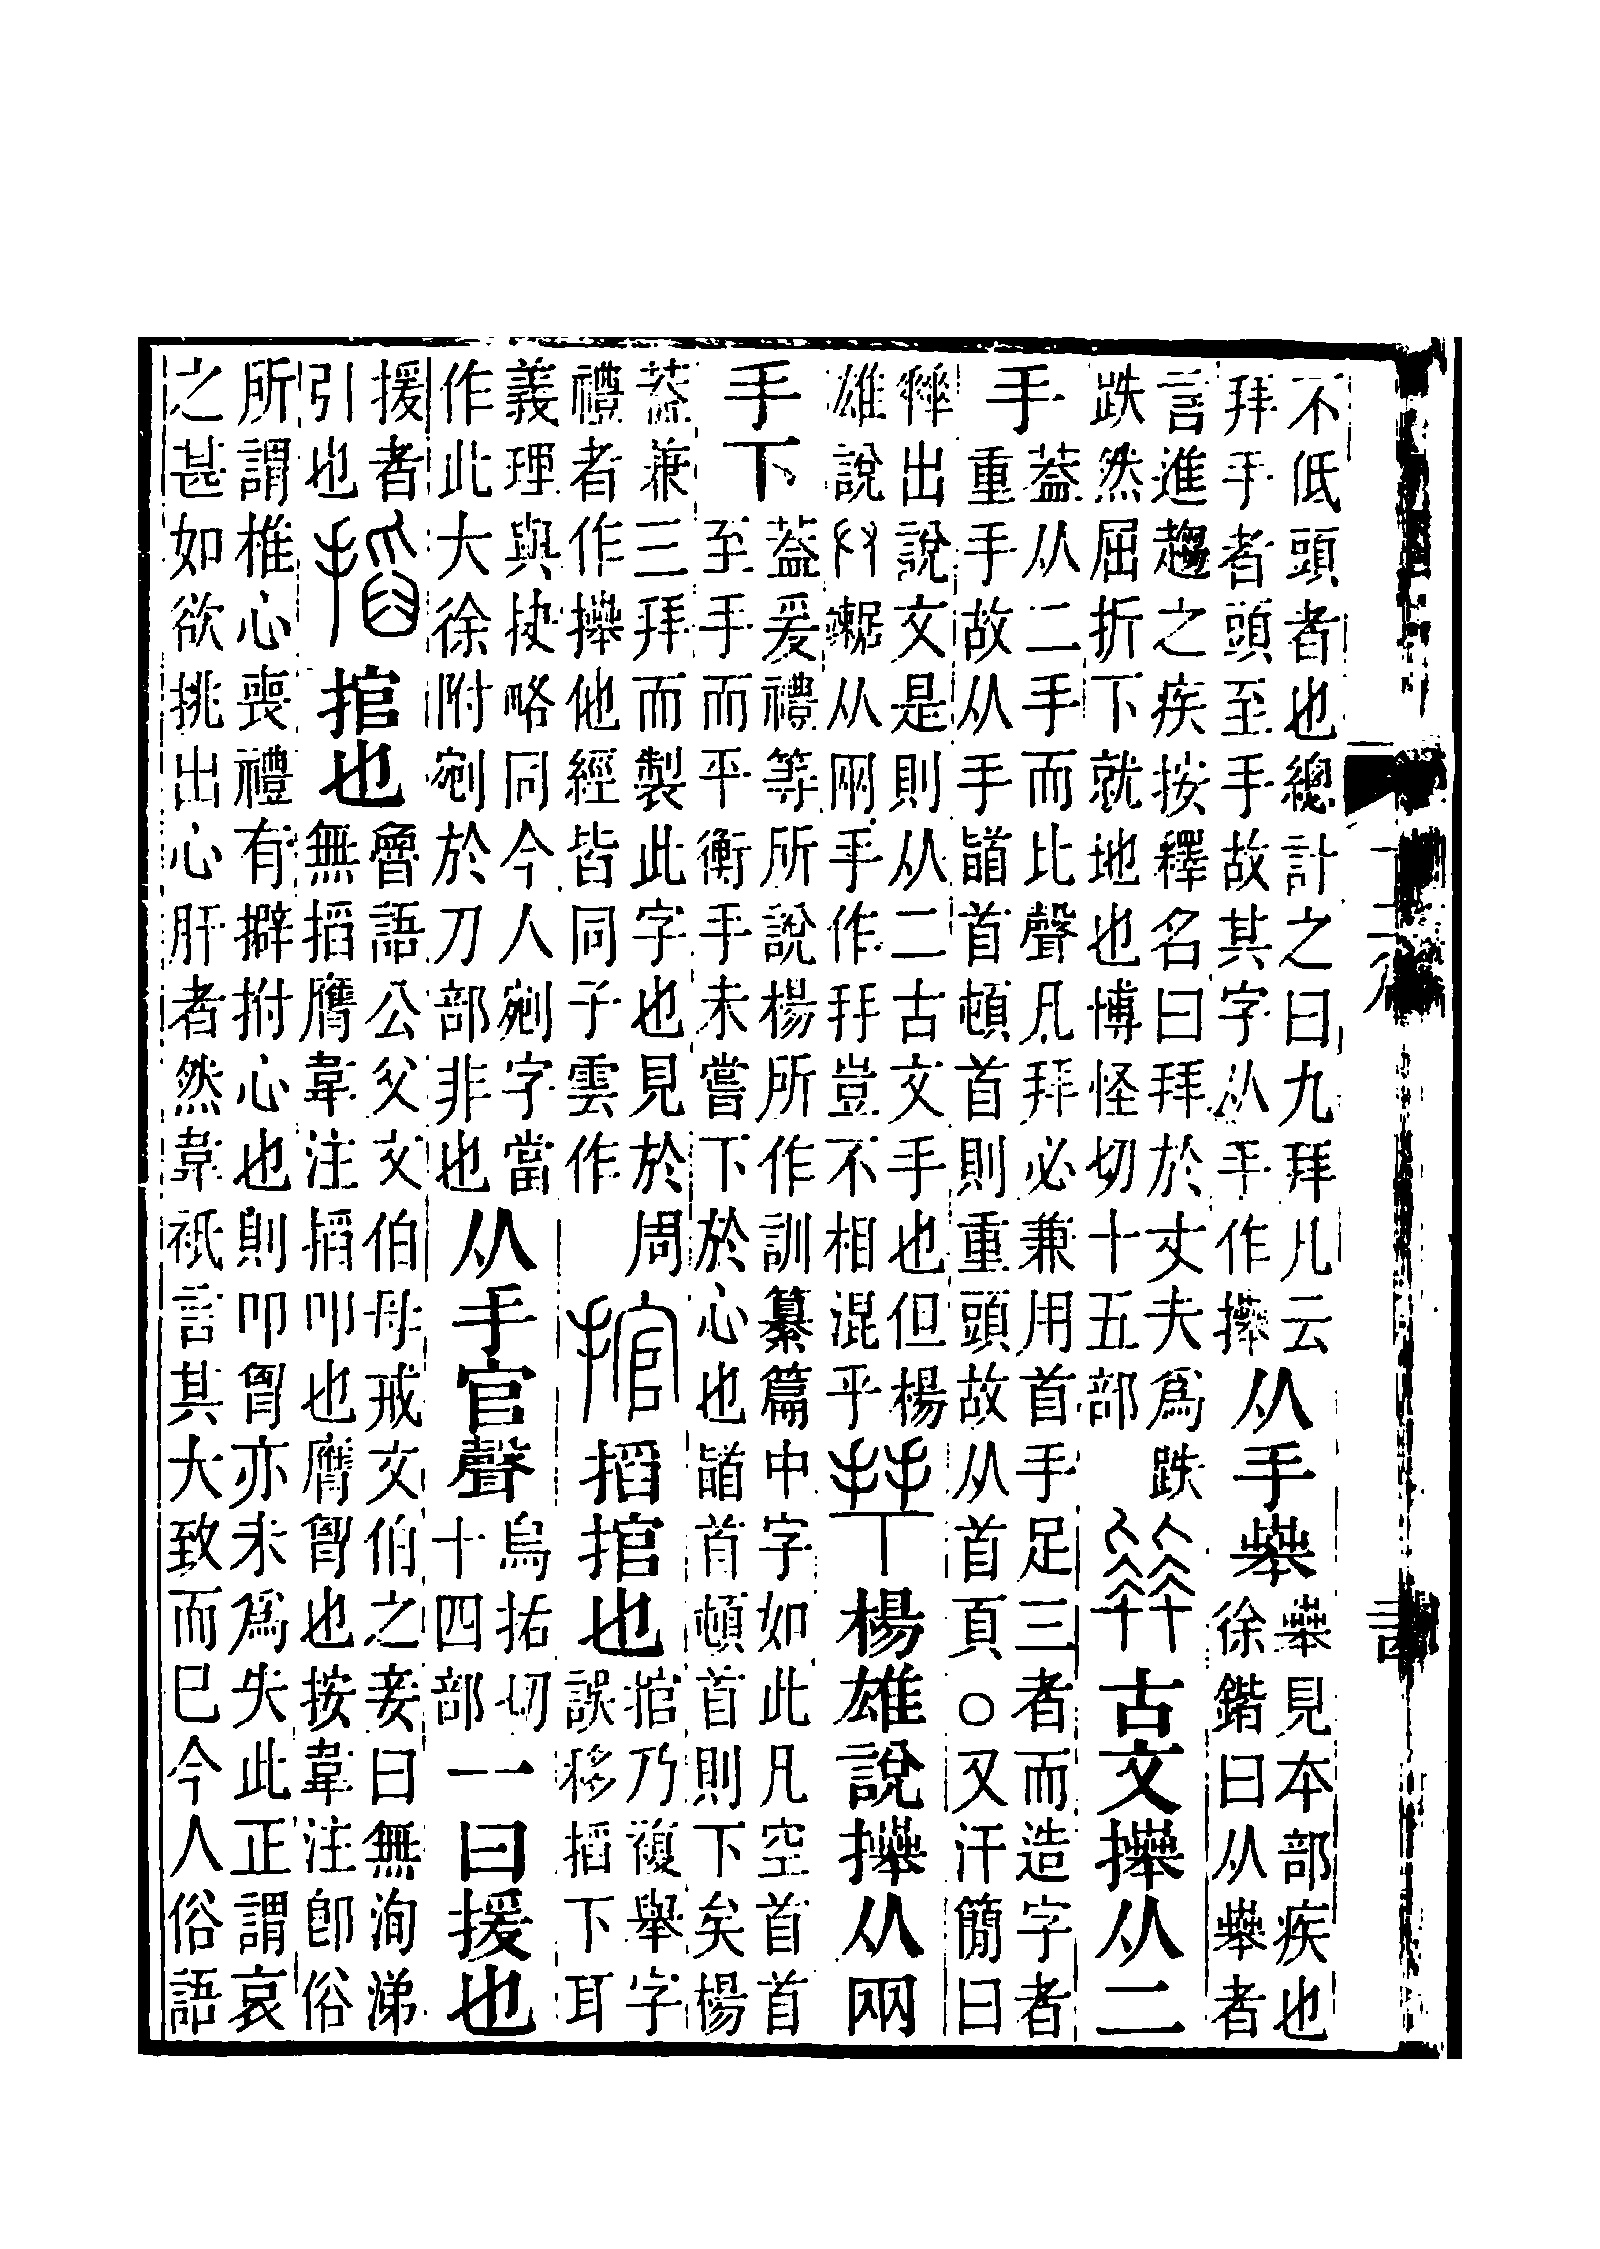 不低頭者也總計之曰九拜凡云
拜手者頭至手故其字从手作𢷎
从手𠦪
𠦪見本部疾也
徐鍇曰从𠦪者
言進趨之疾按釋名曰拜於丈夫爲跌
跌然屈折下就地也博怪切十五部
古文𢷎从二
手
蓋从二手而比聲凡拜必兼用首手足三者而造字者
重手故从手䭫首頓首則重頭故从首頁○又汗簡曰
出說文是則从二古文手也但楊
雄說从兩手作拜豈不相混乎
楊雄說𢷎从兩
手下
蓋爰禮等所說楊所作訓纂篇中字如此凡空首首
至手而平衡手未嘗下於心也䭫首頓首則下矣楊
蓋兼三拜而製此字也見於周
禮者作𢷎他經皆同子雲作
捾
搯捾也
捾乃複舉字
誤移搯下耳
義理與抉略同今人剜字當
作此大徐附剜於刀部非也
从手官聲
烏括切
十四部
一曰援也
援者
引也
搯
捾也
魯語公父文伯母戒文伯之妾曰無洵涕
無搯膺韋注搯叩也膺胷也按韋注卽俗
所謂椎心喪禮有擗拊心也則叩胷亦未爲失此正謂哀
之甚如欲挑出心肝者然韋衹言其大致而已今人俗語